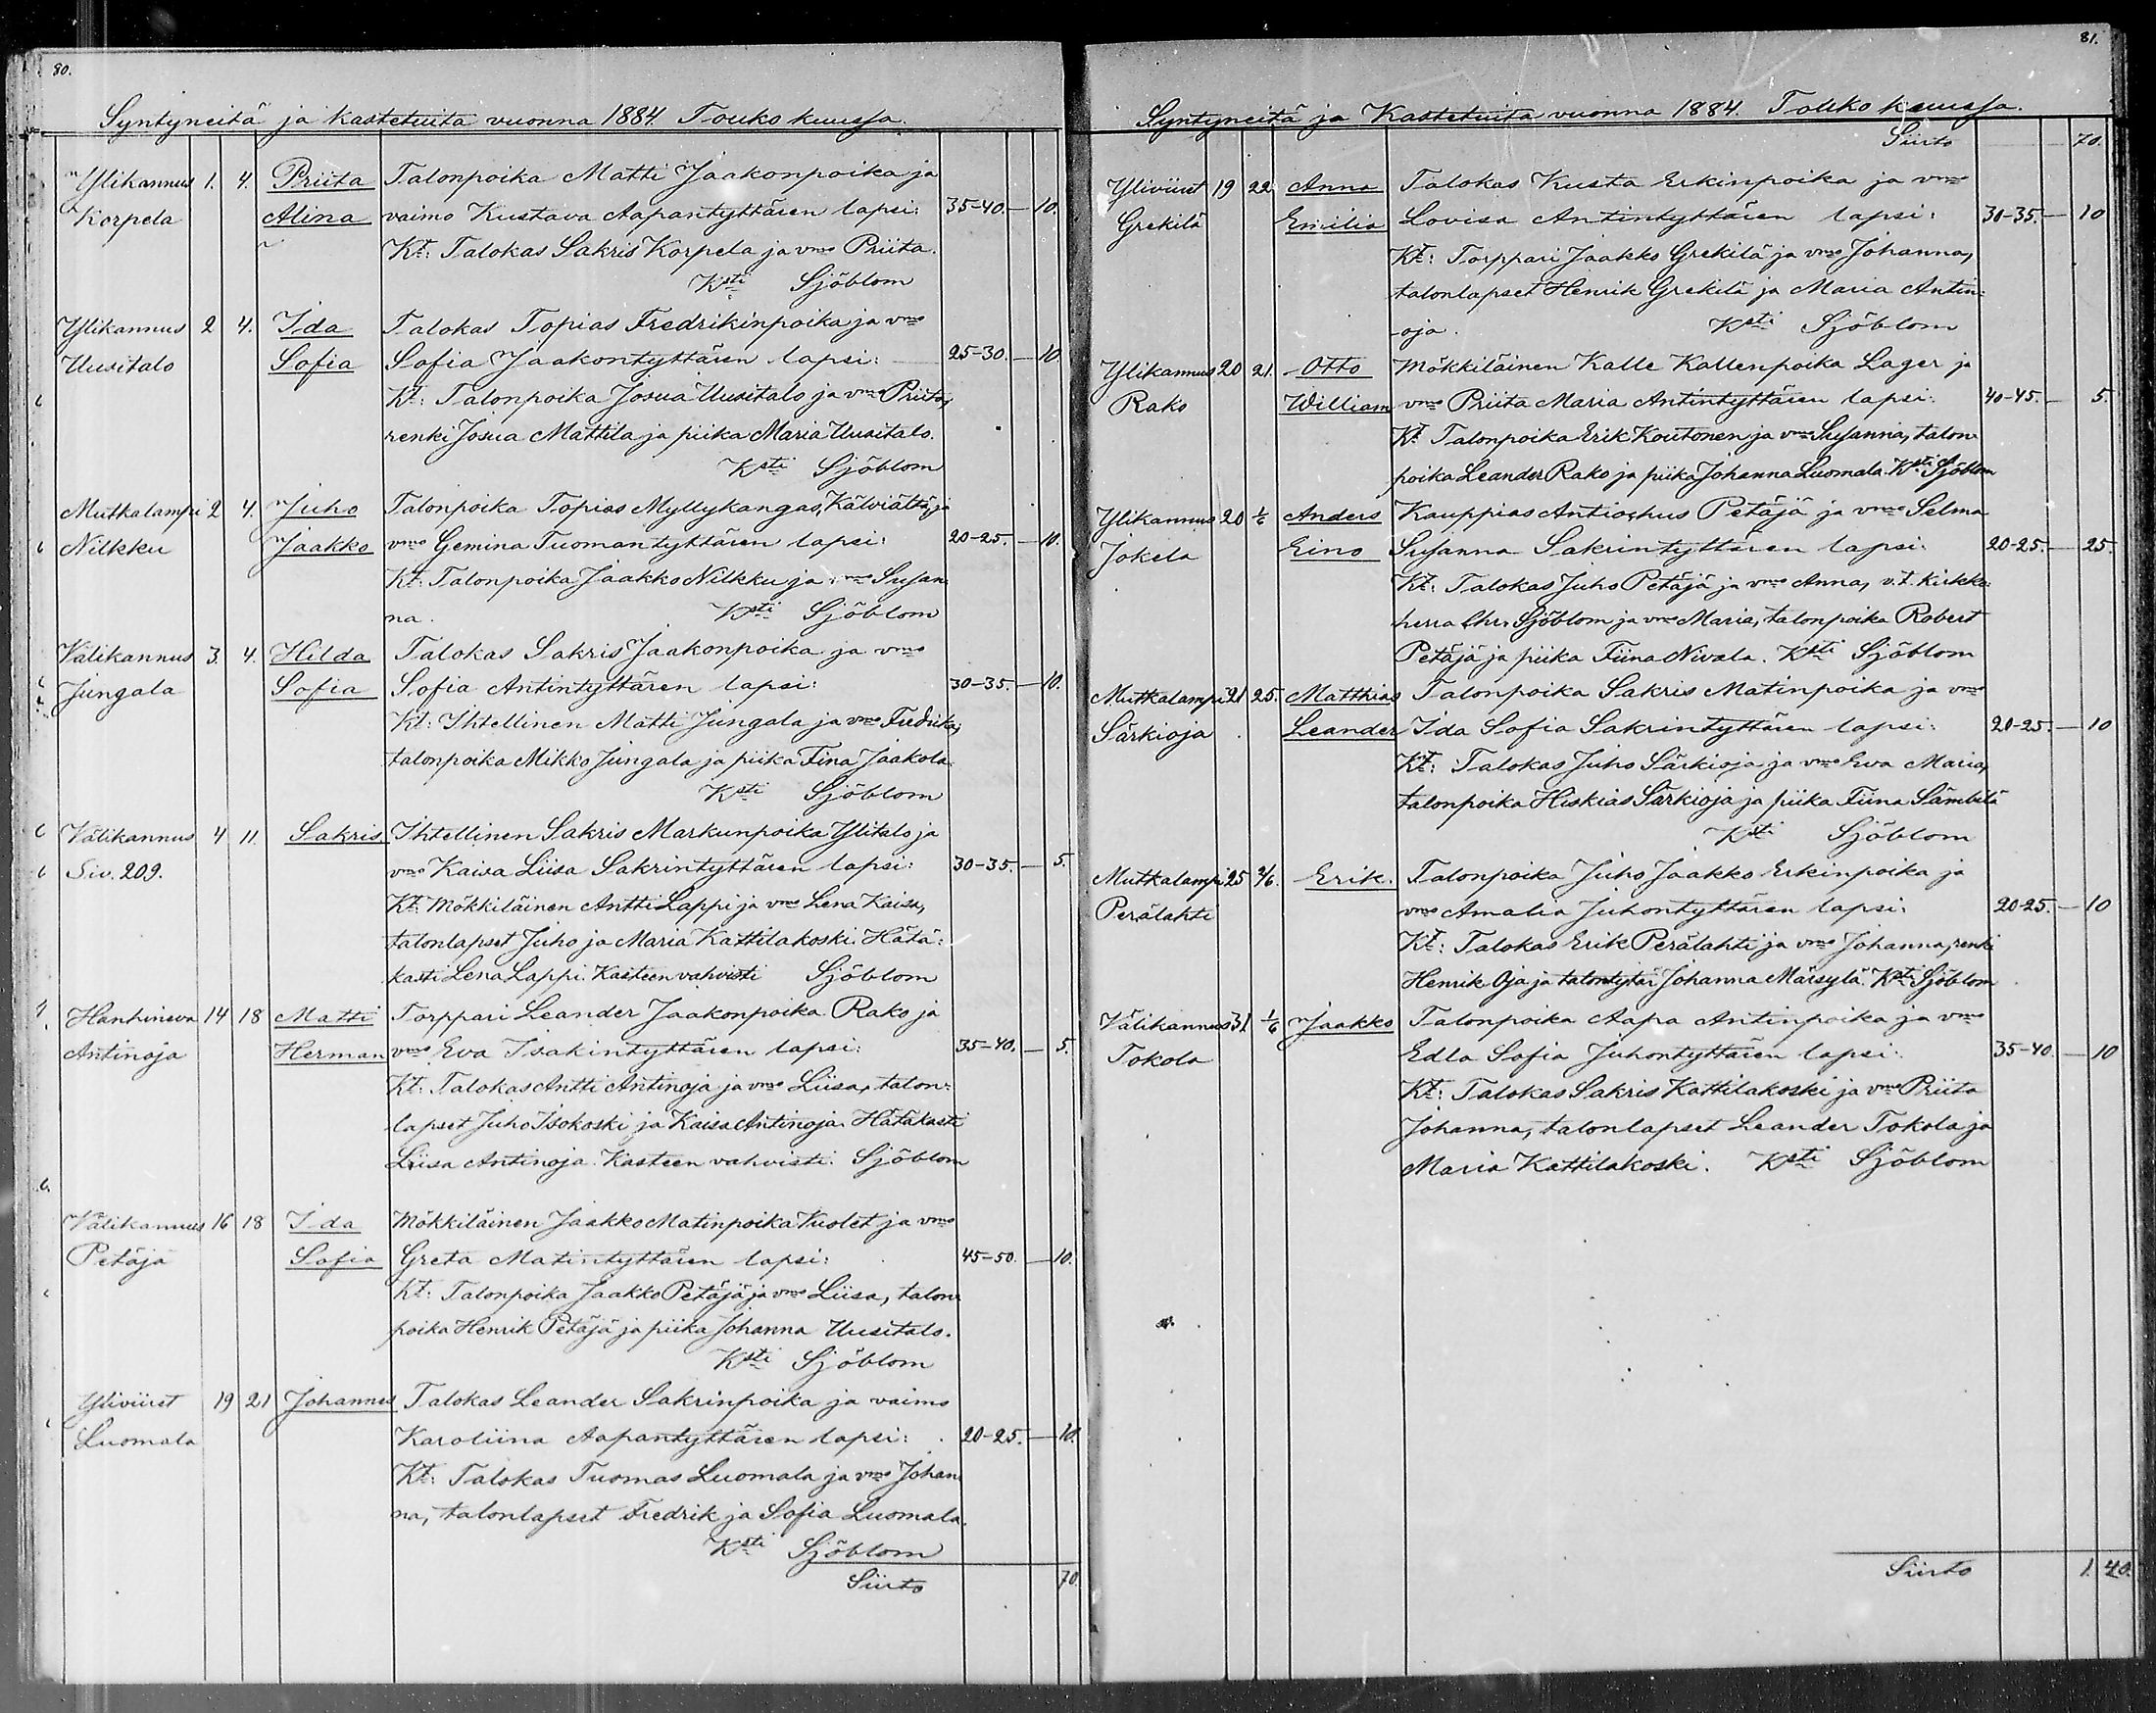 80.
Syntyneitä ja kastetuita vuonna 1884. Toukokuussa.
Ylikannus 1. 4. Priita Talonpoika Matti Jaakonpoika ja
Korpela Alina vaimo Kustava Aapantyttären lapsi: 35-40. — 10.
Kt: Talokas Sakris Korpela ja vmo Priita.
Ksti Sjöblom
Ylikannus 2 4. Ida Talokas Topias Fredrikinpoika ja vmo
Uusitalo Sofia Sofia Jaakontyttären lapsi: 25-30. — 10
Kt: Talonpoika Josua Uusitalo ja vmo Priita,
renki Josua Mattila ja piika Maria Uusitalo.
Ksti Sjöblom
Mutkalampi 2 4. Juho Talonpoika Topias Myllykangas, Kälviältä, ja
Nilkku Jaakko vmo Gemina Tuomantyttären lapsi: 20-25. — 10.
Kt: Talonpoika Jaakko Nilkku ja vmo Susan
na. Ksti Sjöblom
Välikannus 3. 4. Hilda Talokas Sakris Jaakonpoika ja vmo
Jungala Sofia Sofia Antintyttären lapsi: 30-35. — 10.
Kt: Ihtellinen Matti Jungala ja vmo Fredrika,
talonpoika Mikko Jungala ja piika Fina Jaakola
Ksti Sjöblom
Välikannus 4 11. Sakris Ihtellinen Sakris Markunpoika Ylitalo ja
Siv. 209. vmo Kaisa Liisa Sakrintyttären lapsi: 30-35. — 5.
Kt: Mökkiläinen Antti Lappi ja vmo Lena Kaisa,
talonlapset Juho ja Maria Kattilakoski. Hätä:
kasti Lena Lappi. Kasteen vahvisti Sjöblom
Hanhineva 14 18 Matti Torppari Leander Jaakonpoika Rako ja
Antinoja Herman vmo Eva Isakintyttären lapsi: 35-40. — 5.
Kt: Talokas Antti Antinoja ja vmo Liisa, talon-
lapset Juho Isokoski ja Kaisa Antinoja. Hätäkasti
Liisa Antinoja. Kasteen vahvisti. Sjöblom
Välikannus 16 18 Ida Mökkiläinen Jaakko Matinpoika Vuolet ja vmo
Petäjä Sofia Greta Matintyttären lapsi: 45-50. — 10.
Kt: Talonpoika Jaakko Petäjä ja vmo Liisa, talon-
poika Henrik Petäjä ja piika Johanna Uusitalo.
Ksti Sjöblom
Yliviiret 19 21 Johannes Talokas Leander Sakrinpoika ja vaimo
Luomala Karoliina Aapantyttären lapsi: 20-25. — 10.
Kt: Talokas Tuomas Luomala ja vmo Johan
na, talonlapset Fredrik ja Sofia Luomala.
Ksti Sjöblom
Siirto 70.
81.
Syntyneitä ja Kastetuita vuonna 1884. Toukokuussa.
Siirto 70.
Yliviiret 19 22 Anna Talokas Kusta Erkinpoika ja vmo
Grekilä Emilia Lovisa Antintyttären lapsi: 30-35. — 10
Kt: Torppari Jaakko Grekilä ja vmo Johanna,
talonlapset Henrik Grekilä ja Maria Antin:
-oja. Ksti Sjöblom
Ylikannus 20 21. Otto Mökkiläinen Kalle Kallenpoika Lager ja
Rako William vmo Priita Maria Antintyttären lapsi: 40-45. — 5.
Kt Talonpoika Erik Koutonen ja vmo Susanna, talon-
poika Leander Rako ja piika Johanna Luomala. Ksti Sjöblom
Ylikannus 20 1/6 Anders Kauppias Antiochus Petäjä ja vmo Selma
Jokela Eino Susanna Sakrintyttären lapsi: 20-25. — 25.
Kt: Talokas Juho Petäjä ja vmo Anna, v.t. kirkko-
herra Chr. Sjöblom ja vmo Maria, talonpoika Robert
Petäjä ja piika Fiina Nivala. Ksti Sjöblom
Mutkalampi 21 25. Matthias Talonpoika Sakris Matinpoika ja vmo
Särkioja Leander Ida Sofia Sakrintyttären lapsi: 20-25. — 10
Kt: Talokas Juho Särkioja ja vmo Eva Maria,
talonpoika Hiskias Särkioja ja piika Fiina Sämbilä
Ksti Sjöblom
Mutkalampi 25 2/6. Erik. Talonpoika Juho Jaakko Erkinpoika ja
Perälahti vmo Amalia Juhontyttären lapsi: 20-25. — 10
Kt: Talokas Erik Perälahti ja vmo Johanna, renki
Henrik Oja ja talontytär Johanna Märsylä. Ksti Sjöblom
Välikannus 31. 1/6 Jaakko Talonpoika Aapa Antinpoika ja vmo
Tokola Edla Sofia Juhontyttären lapsi: 35-40. — 10
Kt: Talokas Sakris Kattilakoski ja vmo Priita
Johanna, talonlapset Leander Tokola ja
Maria Kattilakoski. Ksti Sjöblom
Siirto 1. 40.